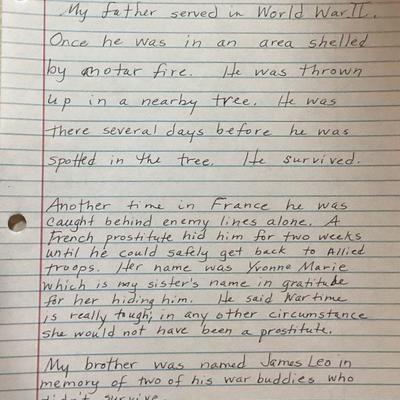 My father served in World War II.
Once he was in an area shelled
by motar fire. He was thrown
up in a nearby tree. He was
there several days before he was
spotted in the tree. He survived.
Another time in France he was
caught behind enemy lines alone. A
French prostitute hid him for two weeks
until he could safely get back to Allied
troops. Her name was Yvonne Marie
which is my sister's name in gratitude
for her hiding him. He said Wartime
is really tough; in any other circumstance
she would not have been a prostitute.
My brother was named James Leo in
memory of two of his war buddies who
didn't survive.